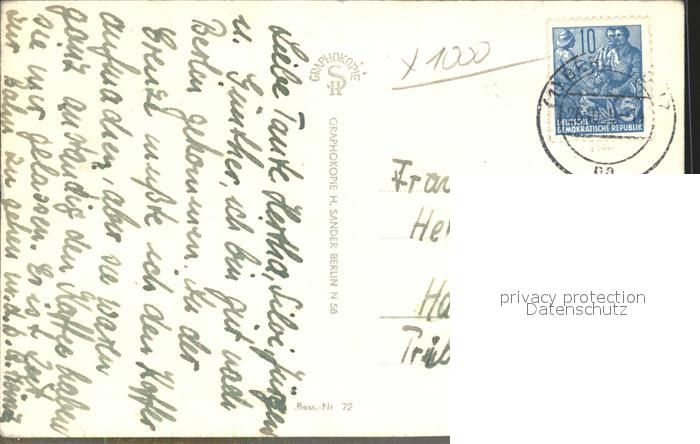 Liebe Tante Hertha, Silvi, Jürgen
u. Günther, ich bin gut nach
Berlin gekommen. An der
Grenze mußte ich den Koffer
aufmachen, aber sie waren
ganz anständig den Kaffee haben
sie mir gelassen. Er ist
zur Bahn zu gehen
GRAPHOKOPIE
GRAPHOKOPIE H. SANDER BERLIN N 58
Best.-Nr 72
x 1000
10
DEUTSCHE
DEMOKRATISCHE REPUBLIK
Frau
He
Ha
privacy protection
Datenschutz